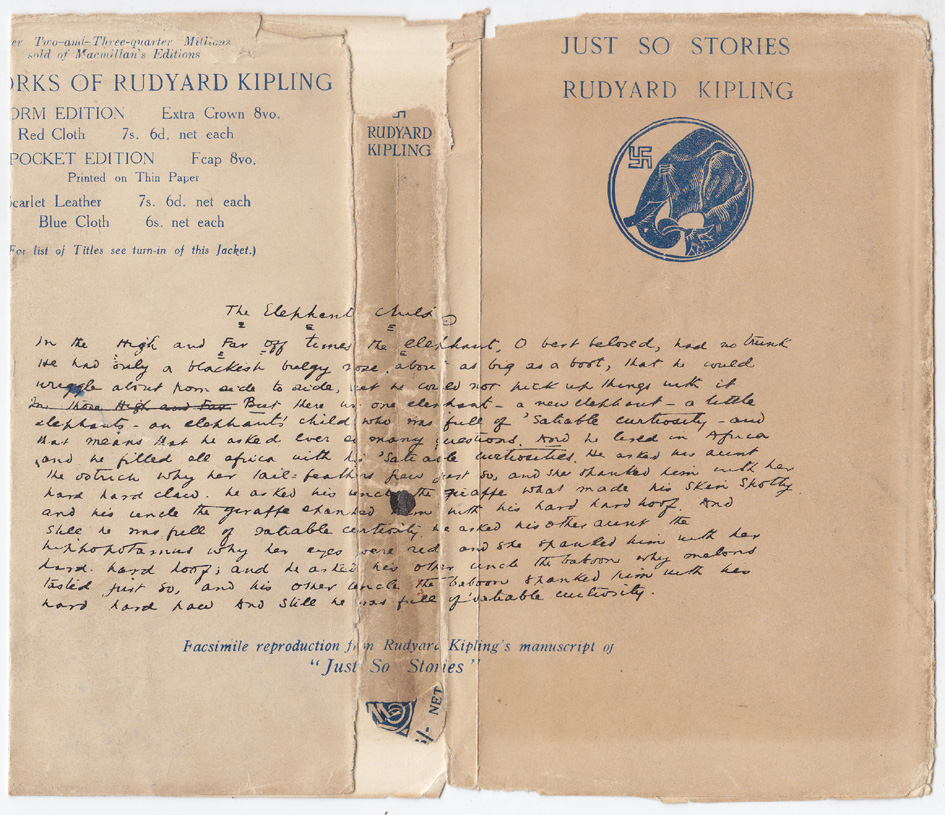 er Two-and-Three-quarter Millions
sold of Macmillan's Editions
ORKS OF RUDYARD KIPLING
ORM EDITION Extra Crown 8vo.
Red Cloth 7s. 6d. net each
POCKET EDITION Fcap 8vo.
Printed on Thin Paper
Scarlet Leather 7s. 6d. net each
Blue Cloth 6s. net each
For list of Titles see turn-in of this Jacket.)
RUDYARD
KIPLING
/- NET
JUST SO STORIES
RUDYARD KIPLING
The Elephant Child
In the High and Far Off times the elephant, O best beloved, had no trunk
He had only a blackish bulgy nose, as big as a boot, that he could
wriggle about from side to side, but he could not pick up things with it
In Those High and Far But there was one elephant - a new elephant - a little
elephants - an elephant's child who was full of 'Satiable curtiosity - and
that means that he asked ever so many questions. And he lived in Africa
and he filled all africa with his 'Satiable curtiosities. He asked his aunt
the ostrich why her tail-feathers grew just so, and she spanked him with her
hard hard claw. he asked his uncle the giraffe what made his skin spotty
and his uncle the giraffe spanked him with his hard hard hoof. And
still he was full of satiable curtiosity. he asked his other aunt the
hippopotamus why her eyes were red and she spanked him with her
hard. hard hoof; and he asked his other uncle the baboon why melons
tasted just so, and his other uncle the baboon spanked him with his
hard hard paw And still he was full of 'satiable curtiosity.
Facsimile reproduction from Rudyard Kipling's manuscript of
"Just So Stories"